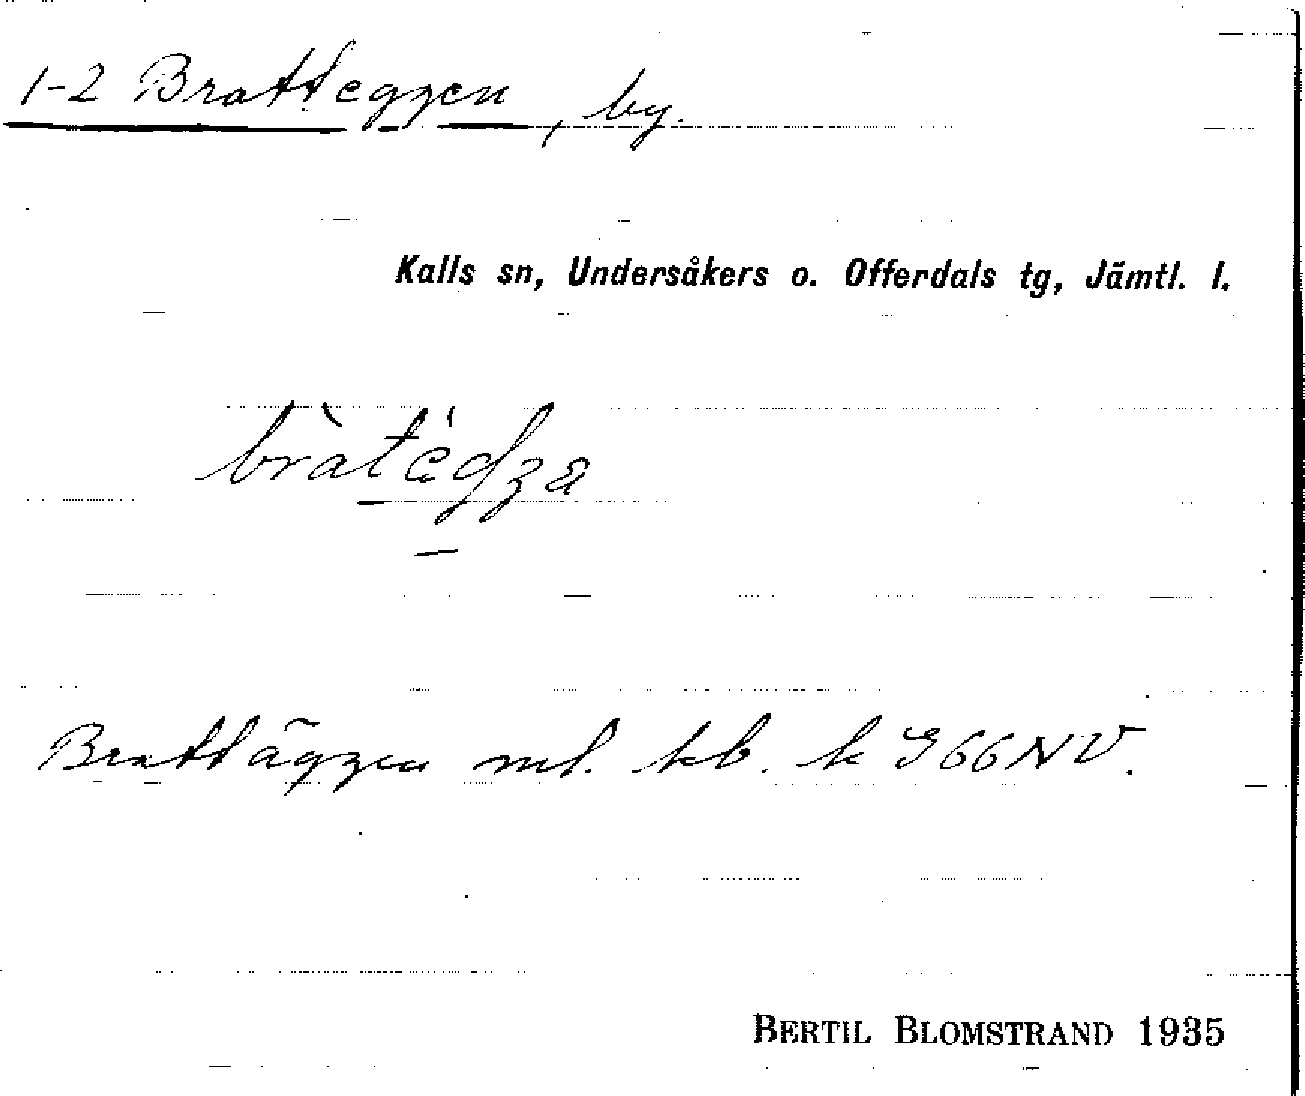 1-2 Bratteggen, by.
Kalls sn, Undersåkers o. Offerdals tg, Jämtl. l.
Brattäggen ml. kb. k S66NV.
BERTIL BLOMSTRAND 1935